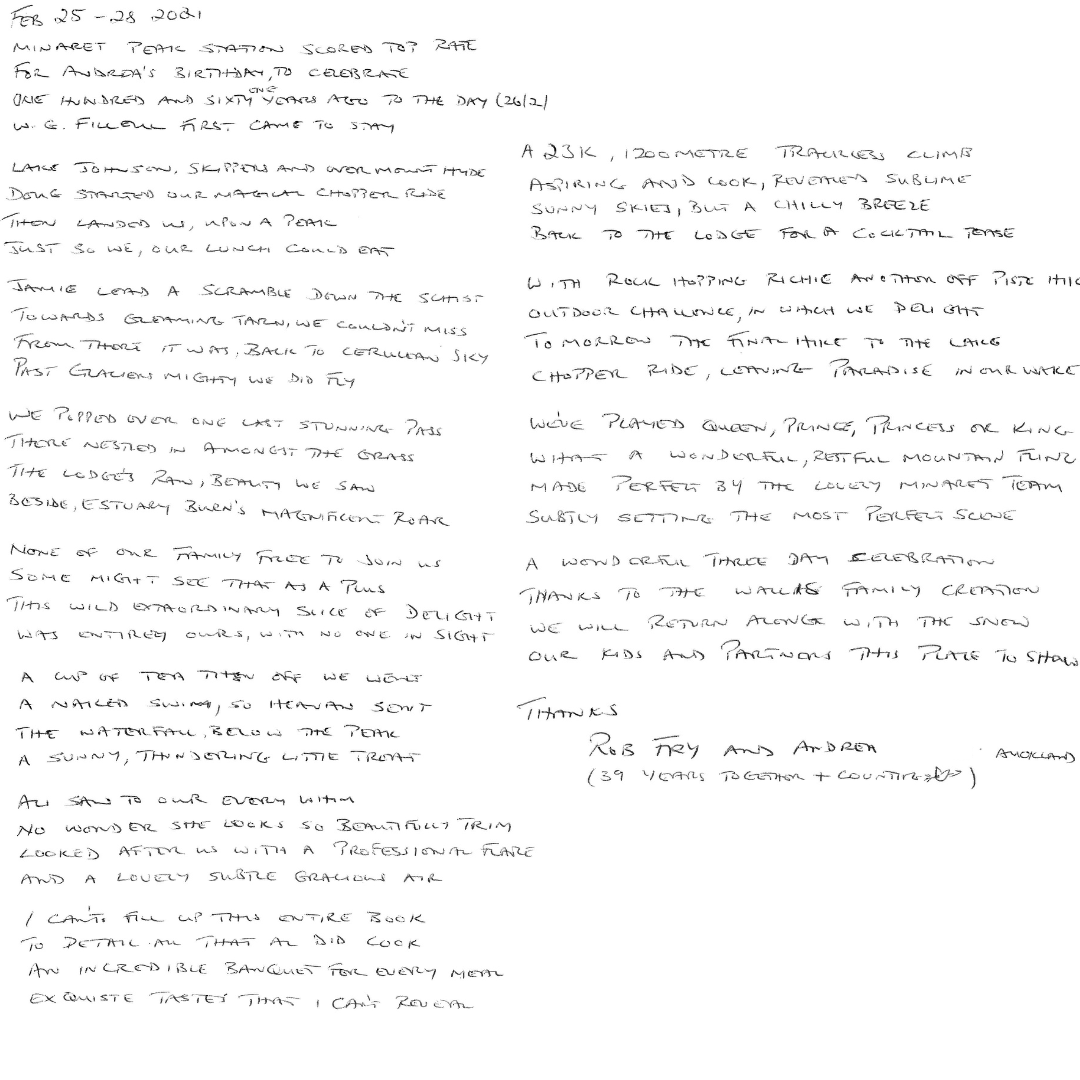 FEB 25-28 2021
MINARET PEAK STATION SCORED TOP RATE
FOR ANDREA'S BIRTHDAY, TO CELEBRATE
ONE HUNDRED AND SIXTY ONE YEARS AGO TO THE DAY (26/2)
W. G. FIRST CAME TO STAY
LAKE JOHNSON, SKIPPERS AND OVER MOUNT HYDE
DOUG STARTED OUR MAGICAL CHOPPER RIDE
THEN LANDED US, UPON A PEAK
JUST SO WE, OUR LUNCH COULD EAT
JAMIE LEAD A SCRAMBLE DOWN THE SCHIST
TOWARDS GLEAMING TARN, WE COULDN'T MISS
FROM THERE IT WAS, BACK TO CERULEAN SKY
PAST GLACIERS MIGHTY WE DID FLY
WE POPPED OVER ONE LAST STUNNING PASS
THERE NESTLED IN AMONGST THE GRASS
THE LODGE'S RAW, BEAUTY WE SAW
BESIDE, ESTUARY BURN'S MAGNIFICENT ROAR
NONE OF OUR FAMILY FREE TO JOIN US
SOME MIGHT SEE THAT AS A PLUS
THIS WILD EXTAORDINARY SLICE OF DELIGHT
WAS ENTIRELY OURS, WITH NO ONE IN SIGHT
A CUP OF TEA THEN OFF WE WENT
A NAKED SWIM, SO HEAVAN SENT
THE WATERFALL, BELOW THE PEAK
A SUNNY, THUNDERING LITTLE TREAT
ALI SAW TO OUR EVERY WHIM
NO WONDER SHE LOOKS SO BEAUTIFULLY TRIM
LOOKED AFTER US WITH A PROFESSIONAL FLARE
AND A LOVELY SUBTLE GRACIOUS AIR
I CAN'T FILL UP THIS ENTIRE BOOK
TO DETAIL ALL THAT AL DID COOK
AN INCREDIBLE BANQUET FOR EVERY MEAL
EXQUISTE TASTES THAT I CAN'T REVEAL
A 23K, 1200 METRE TRACKLESS CLIMB
ASPIRING AND COOK, REVEALED SUBLIME
SUNNY SKIES, BUT A CHILLY BREEZE
BACK TO THE LODGE FOR A COCKTAIL TEASE
WITH ROCK HOPPING RICHIE ANOTHER OFF PISTE HIK
OUTDOOR CHALLENGE, IN WHICH WE DELIGHT
TOMORROW THE FINAL HIKE TO THE LAKE
CHOPPER RIDE, LEAVING PARADISE IN OUR WAKE
WE'VE PLAYED QUEEN, PRINCE, PRINCESS OR KING
WHAT A WONDERFUL, RESTFUL MOUNTAIN FLING
MADE PERFECT BY THE LOVELY MINARET TEAM
SUBTLY SETTING THE MOST PERFECT SCENE
A WONDERFUL THREE DAY CELEBRATION
THANKS TO THE WALLIS FAMILY CREATION
WE WILL RETURN ALONGE WITH THE SNOW
OUR KIDS AND PARTNERS THIS PLACE TO SHOW
THANKS
ROB FRY AND ANDREA AUCKLAND
(39 YEARS TOGETHER + COUNTING)